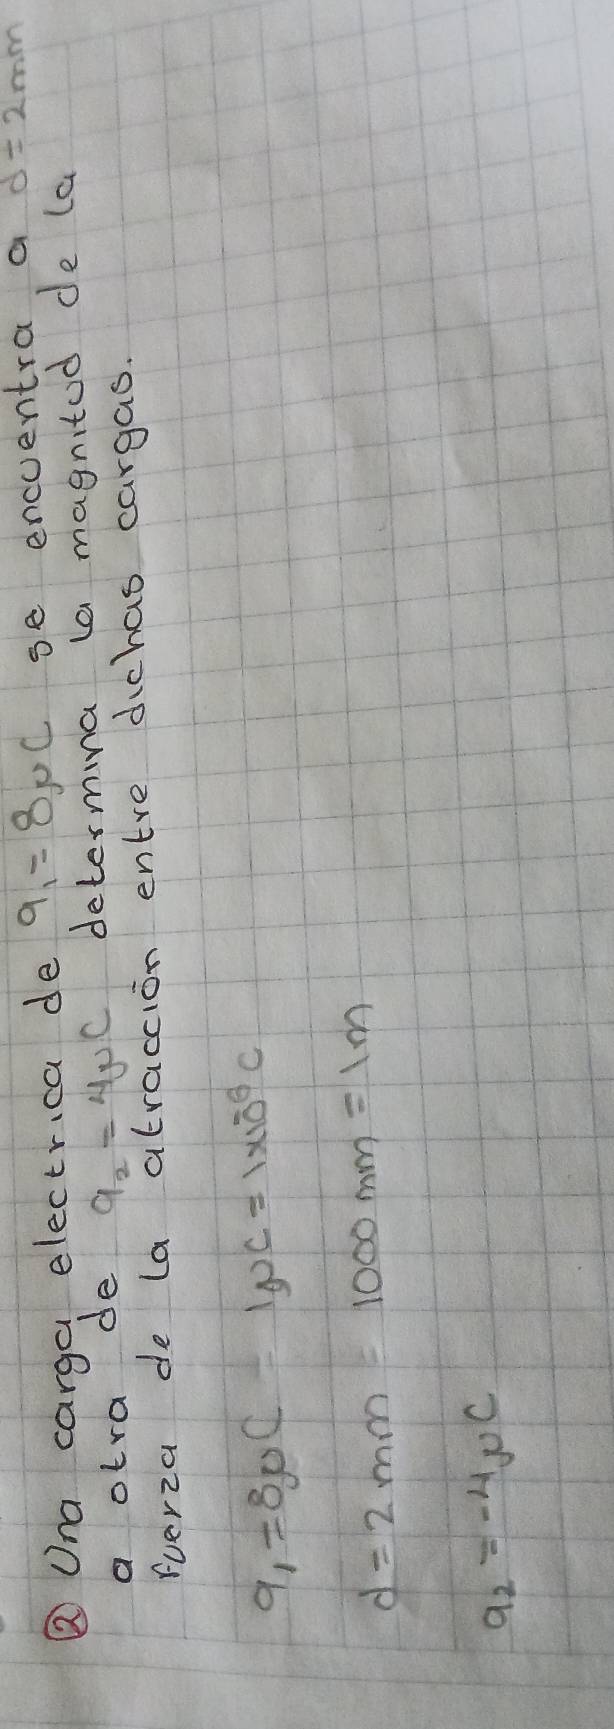 ② Una carga electrica de q₁=8μC se encuentra a d=2mm
a otra de q₂=4μC determina la magnitud de la
fuerza de la atracción entre dichas cargas.
q₁=8μC = 1μC=1x10⁻⁶C
d=2mm = 1000mm=1m
q₂=-4μC